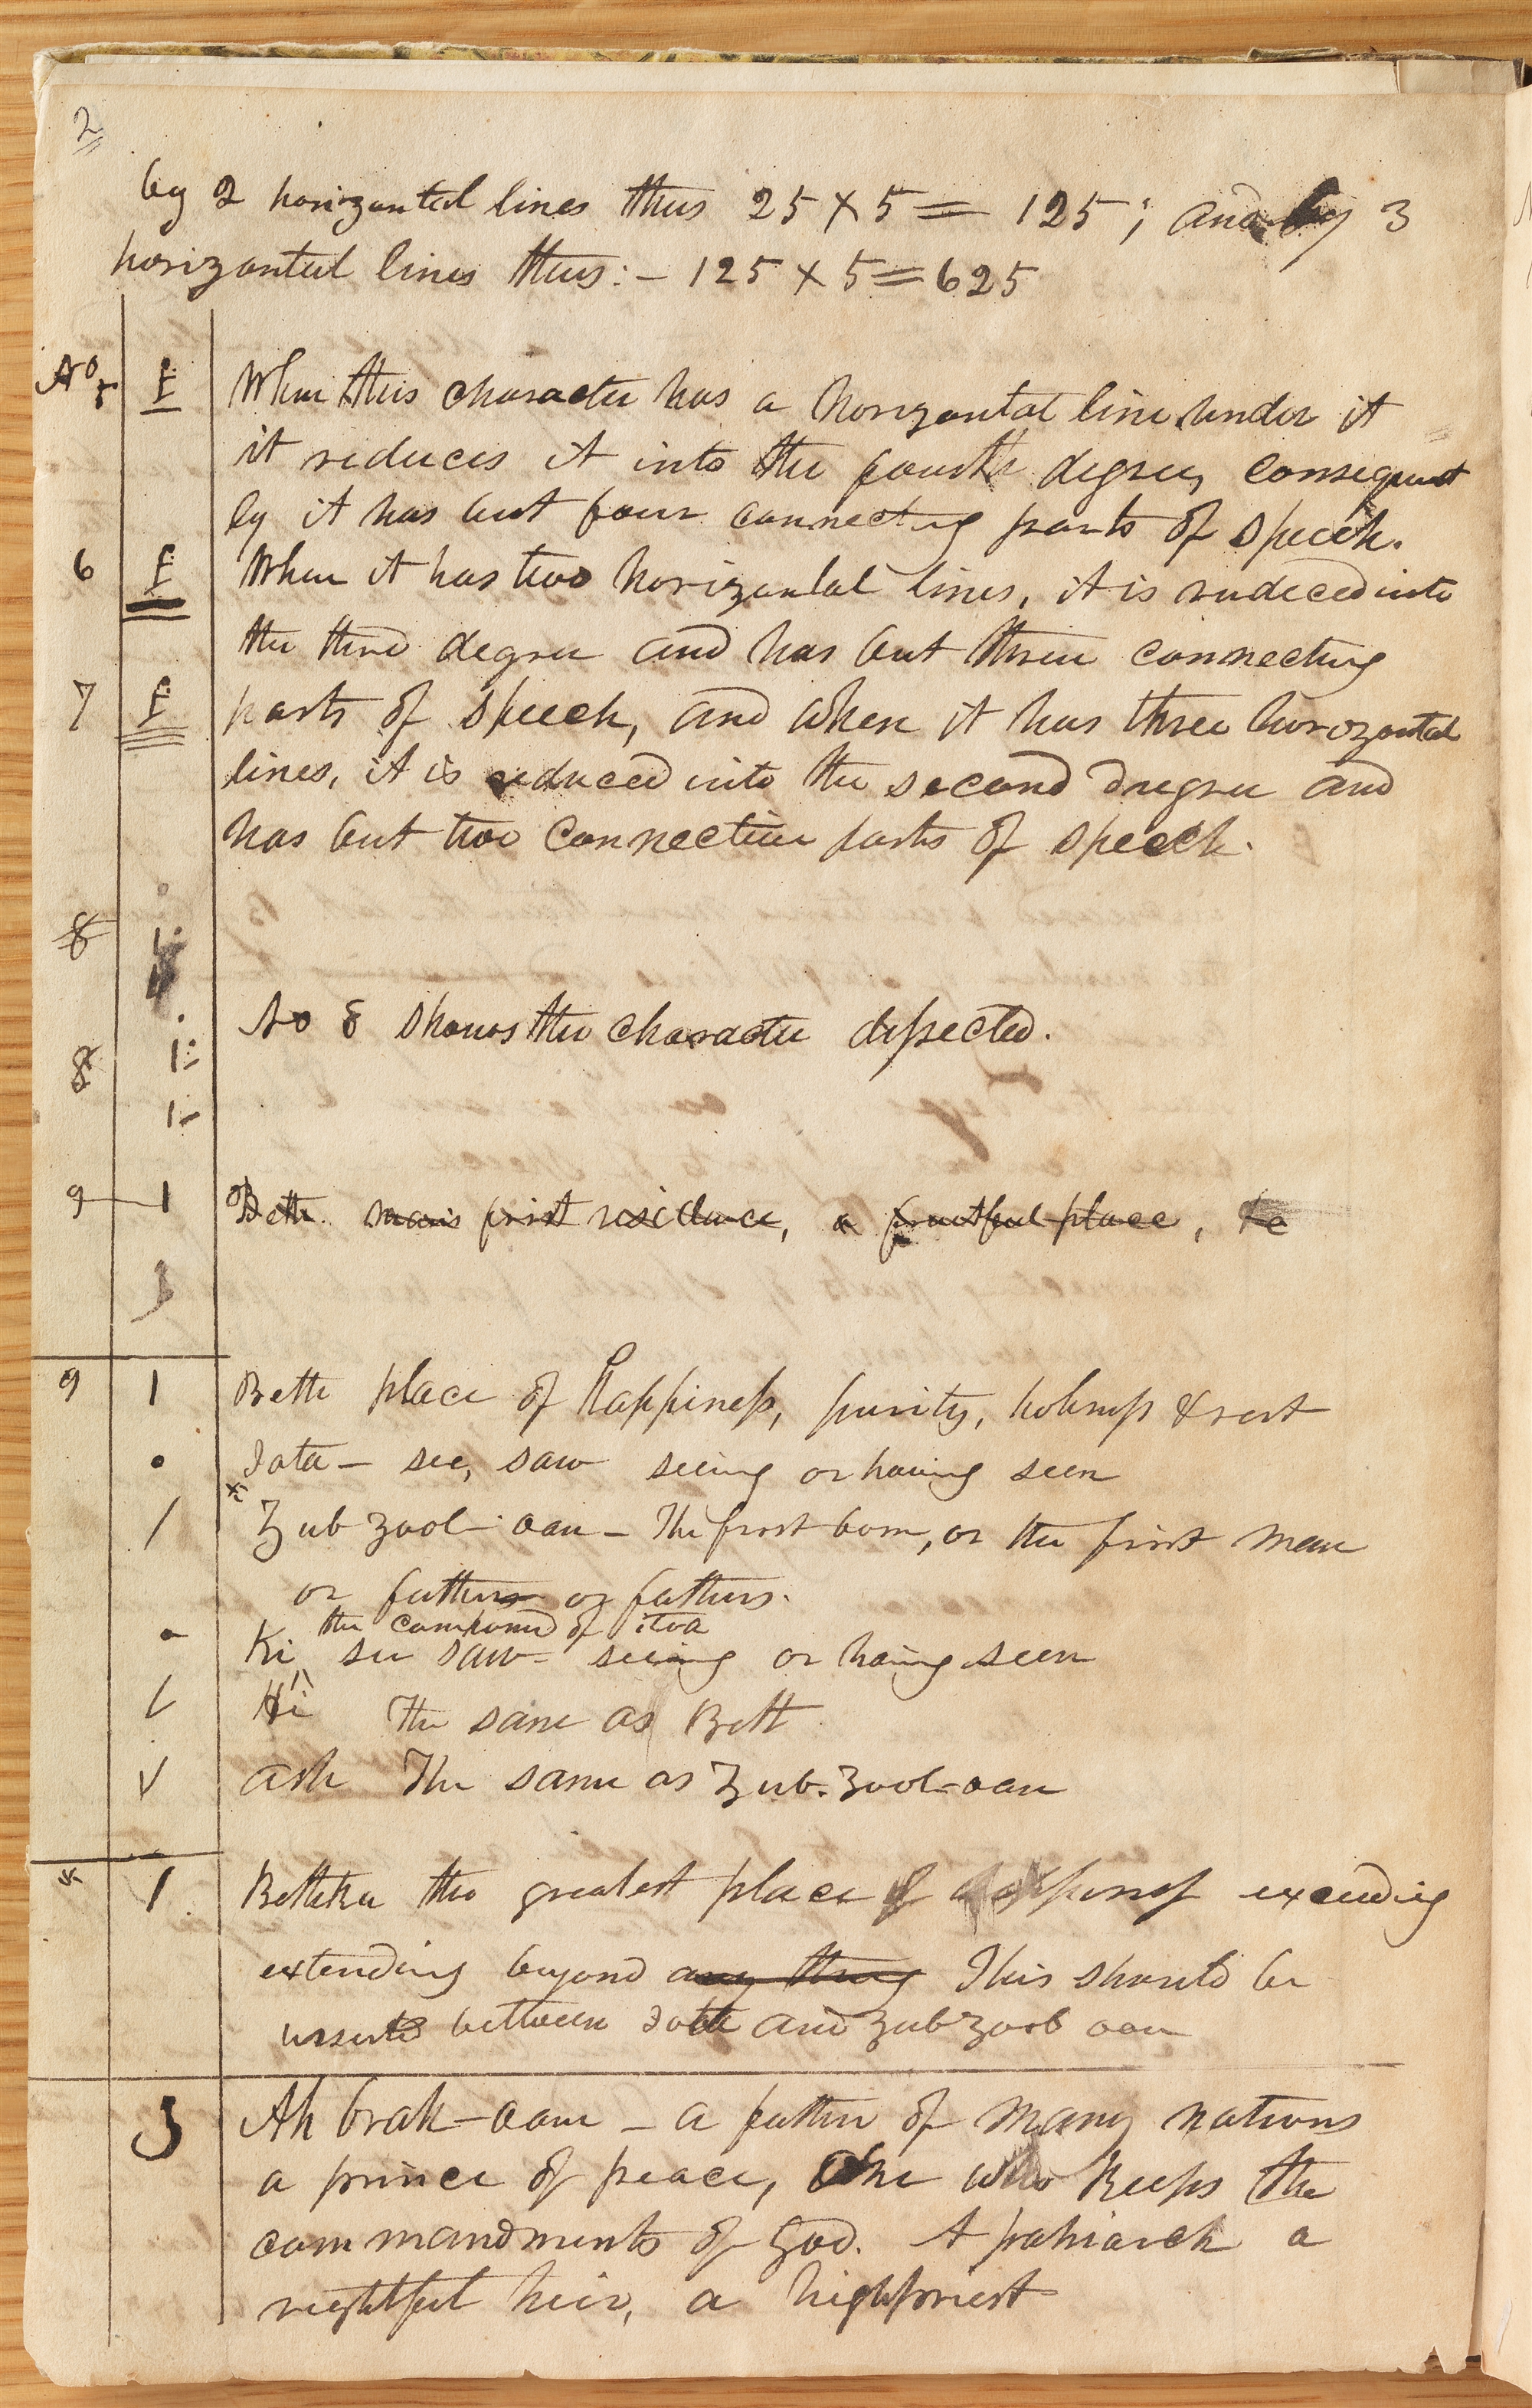 2
by 2 horizontal lines thus 25 × 5 = 125; and by 3
horizantal lines thus:— 125 × 5 = 625
No 5 When this character has a horizontal line under it
it reduces it into the fourth degree, consequent
ly it has but four connecting parts of speech.
6 When it has two horizantal lines, it is reduced into
the third degree and has but three connecting
7 parts of speech, and when it has three horizontal
lines, it is reduced into the second degree and
has but two connecting parts of speech.
8
No 8 shows the character disected.
8
9 Beth mans first residence, a fruitful place,
9 Beth place of happiness, purity, holiness & rest
Iota— see, saw seeing or having seen
* Zub zool— oan— The first born, or the first man
or fathers or fathers.
the compound of itoa
Ki see saw— seeing or having seen
Hi The same as Beth
ash The same as Zub-Zool-oan
* Betheka the greatest place of happiness exceeding
extending beyond any thing This should be
between Iota and Zub zool oan
Ah brah—oam — a father of many nations
a prince of peace, one who keeps the
commandments of God. A patriarch a
rightful heir, a highpriest